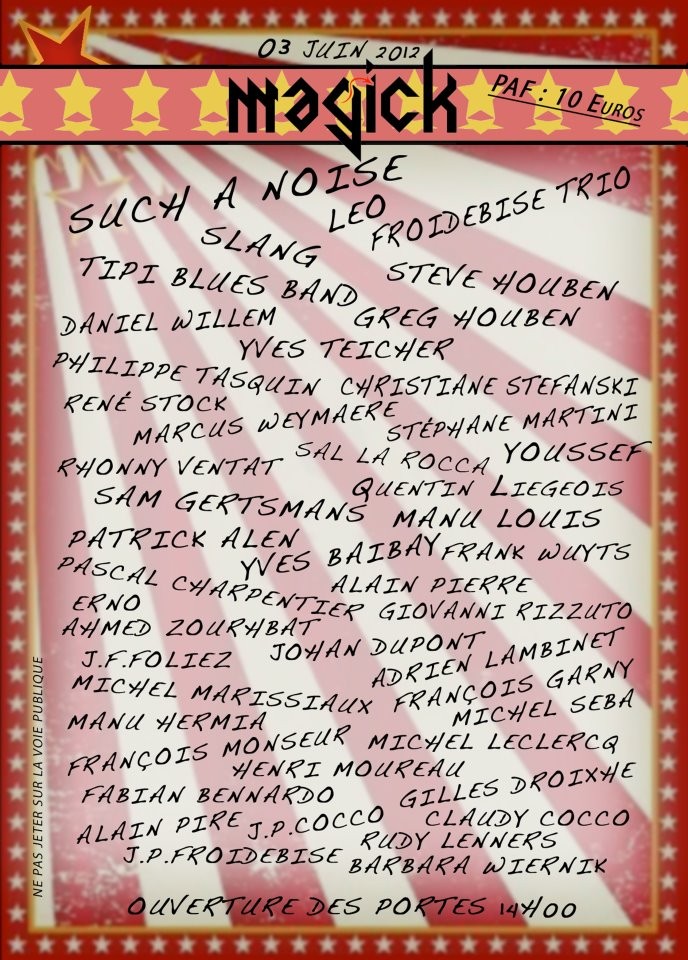 03 JUIN 2012
magick
PAF : 10 EUROS
SUCH A NOISE
LEO
FROIDEBISE TRIO
SLANG
TIPI BLUES BAND
STEVE HOUBEN
DANIEL WILLEM
GREG HOUBEN
YVES TEICHER
PHILIPPE TASQUIN
CHRISTIANE STEFANSKI
RENÉ STOCK
MARCUS WEYMAERE
STÉPHANE MARTINI
RHONNY VENTAT
SAL LA ROCCA
YOUSSEF
QUENTIN LIEGEOIS
SAM GERTSMANS
MANU LOUIS
PATRICK ALEN
YVES BAIBAY
FRANK WUYTS
PASCAL CHARPENTIER
ALAIN PIERRE
ERNO
GIOVANNI RIZZUTO
AHMED ZOURHBAT
J.F.FOLIEZ
JOHAN DUPONT
ADRIEN LAMBINET
MICHEL MARISSIAUX
FRANÇOIS GARNY
MANU HERMIA
MICHEL SEBA
FRANÇOIS MONSEUR
MICHEL LECLERCQ
HENRI MOUREAU
FABIAN BENNARDO
GILLES DROIXHE
ALAIN PIRE
J.P.COCCO
CLAUDY COCCO
RUDY LENNERS
J.P.FROIDEBISE
BARBARA WIERNIK
OUVERTURE DES PORTES 14H00
NE PAS JETER SUR LA VOIE PUBLIQUE